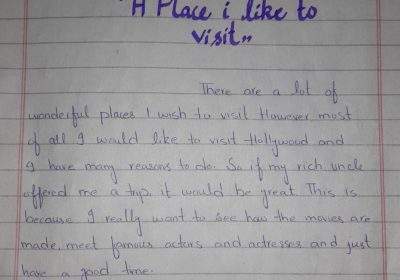 "A Place i like to
visit"
There are a lot of
wonderful places I wish to visit However most
of all I would like to visit Hollywood and
I have many reasons to do. So if my rich uncle
offered me a trip, it would be great. This is
because I really want to see how the movies are
made, meet famous actors and actresses and just
have a good time.